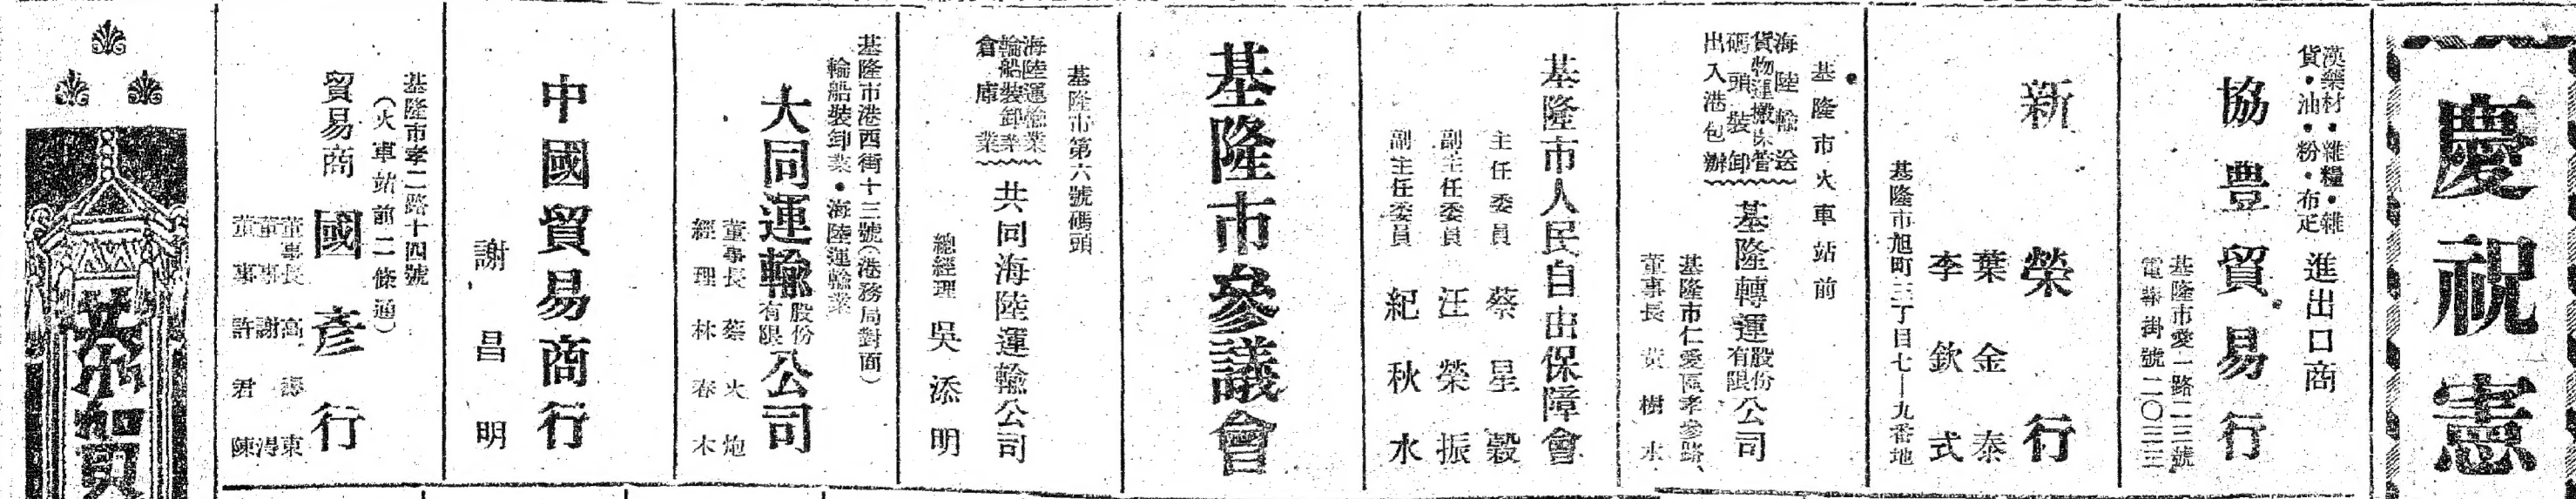 慶祝憲
漢藥材・雜糧・雜
貨・油・粉・布疋
進出口商
協豊貿易行
基隆市愛一路二三號
電報掛號二〇三三
新榮行
葉金泰
李欽式
基隆市旭町三丁目七—九番地
基隆市火車站前
海陸輸送
貨物運搬保管
碼頭裝卸
出入港包辦
基隆轉運股份有限公司
基隆市仁愛區孝參路
董事長 黃樹水
基隆市人民自由保障會
主任委員 蔡星穀
副主任委員 汪榮振
副主任委員 紀秋水
基隆市參議會
基隆市第六號碼頭
海陸運輸業
輪船裝卸業
倉庫業
共同海陸運輸公司
總經理 吳添明
基隆市港西街十三號(港務局對面)
輪船裝卸業・海陸運輸業
大同運輸股份有限公司
董事長 蔡火炮
經理 林春木
中國貿易商行
謝昌明
基隆市孝二路十四號
(火車站前二條通)
貿易商 國彥行
董事長 高壽東
董事 謝得
董事 許君陳
恭賀